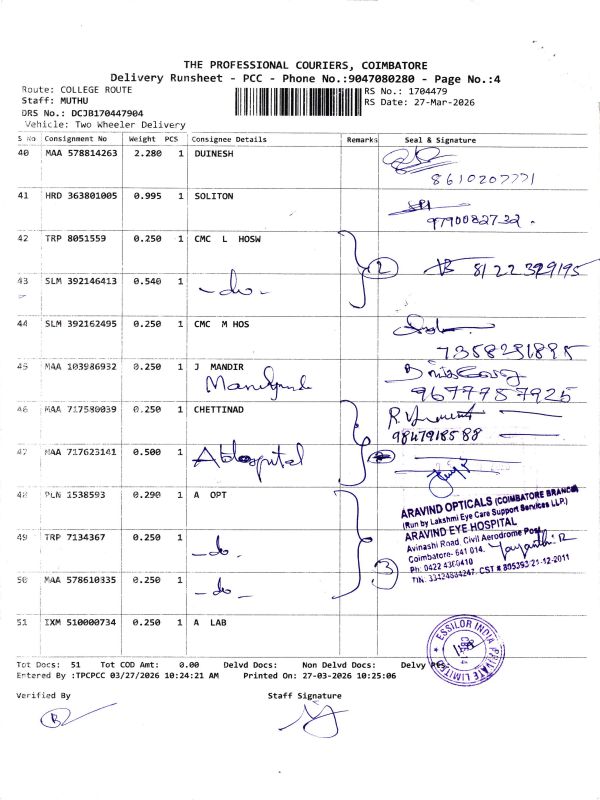 THE PROFESSIONAL COURIERS, COIMBATORE
Delivery Runsheet - PCC - Phone No.:9047080280 - Page No.:4
Route: COLLEGE ROUTE
RS No.: 1704479
Staff: MUTHU
RS Date: 27-Mar-2026
DRS No.: DCJB170447904
Vehicle: Two Wheeler Delivery
S No Consignment No Weight PCS Consignee Details Remarks Seal & Signature
40 MAA 578814263 2.280 1 DUINESH
8610207771
41 HRD 363801005 0.995 1 SOLITON
9790082732.
42 TRP 8051559 0.250 1 CMC L HOSW
2 8122329195
43 SLM 392146413 0.540 1 -do-
44 SLM 392162495 0.250 1 CMC M HOS
7358291895
45 MAA 103986932 0.250 1 J MANDIR
9677787925
46 MAA 717580039 0.250 1 CHETTINAD
9847918588
47 MAA 717623141 0.500 1 A Hospital
48 PLN 1538593 0.290 1 A OPT
ARAVIND OPTICALS (COIMBATORE BRANCH)
(Run by Lakshmi Eye Care Support Services LLP.)
ARAVIND EYE HOSPITAL
Avinashi Road, Civil Aerodrome Post,
Coimbatore- 641 014. Jayanthi R
Ph: 0422 4360410
49 TRP 7134367 0.250 1 -do-
3
50 MAA 578610335 0.250 1 -do-
51 IXM 510000734 0.250 1 A LAB
ESSILOR INDIA PRIVATE LIMITED
Tot Docs: 51 Tot COD Amt: 0.00 Delvd Docs: Non Delvd Docs: Delvy
Entered By :TPCPCC 03/27/2026 10:24:21 AM Printed On: 27-03-2026 10:25:06
Verified By Staff Signature